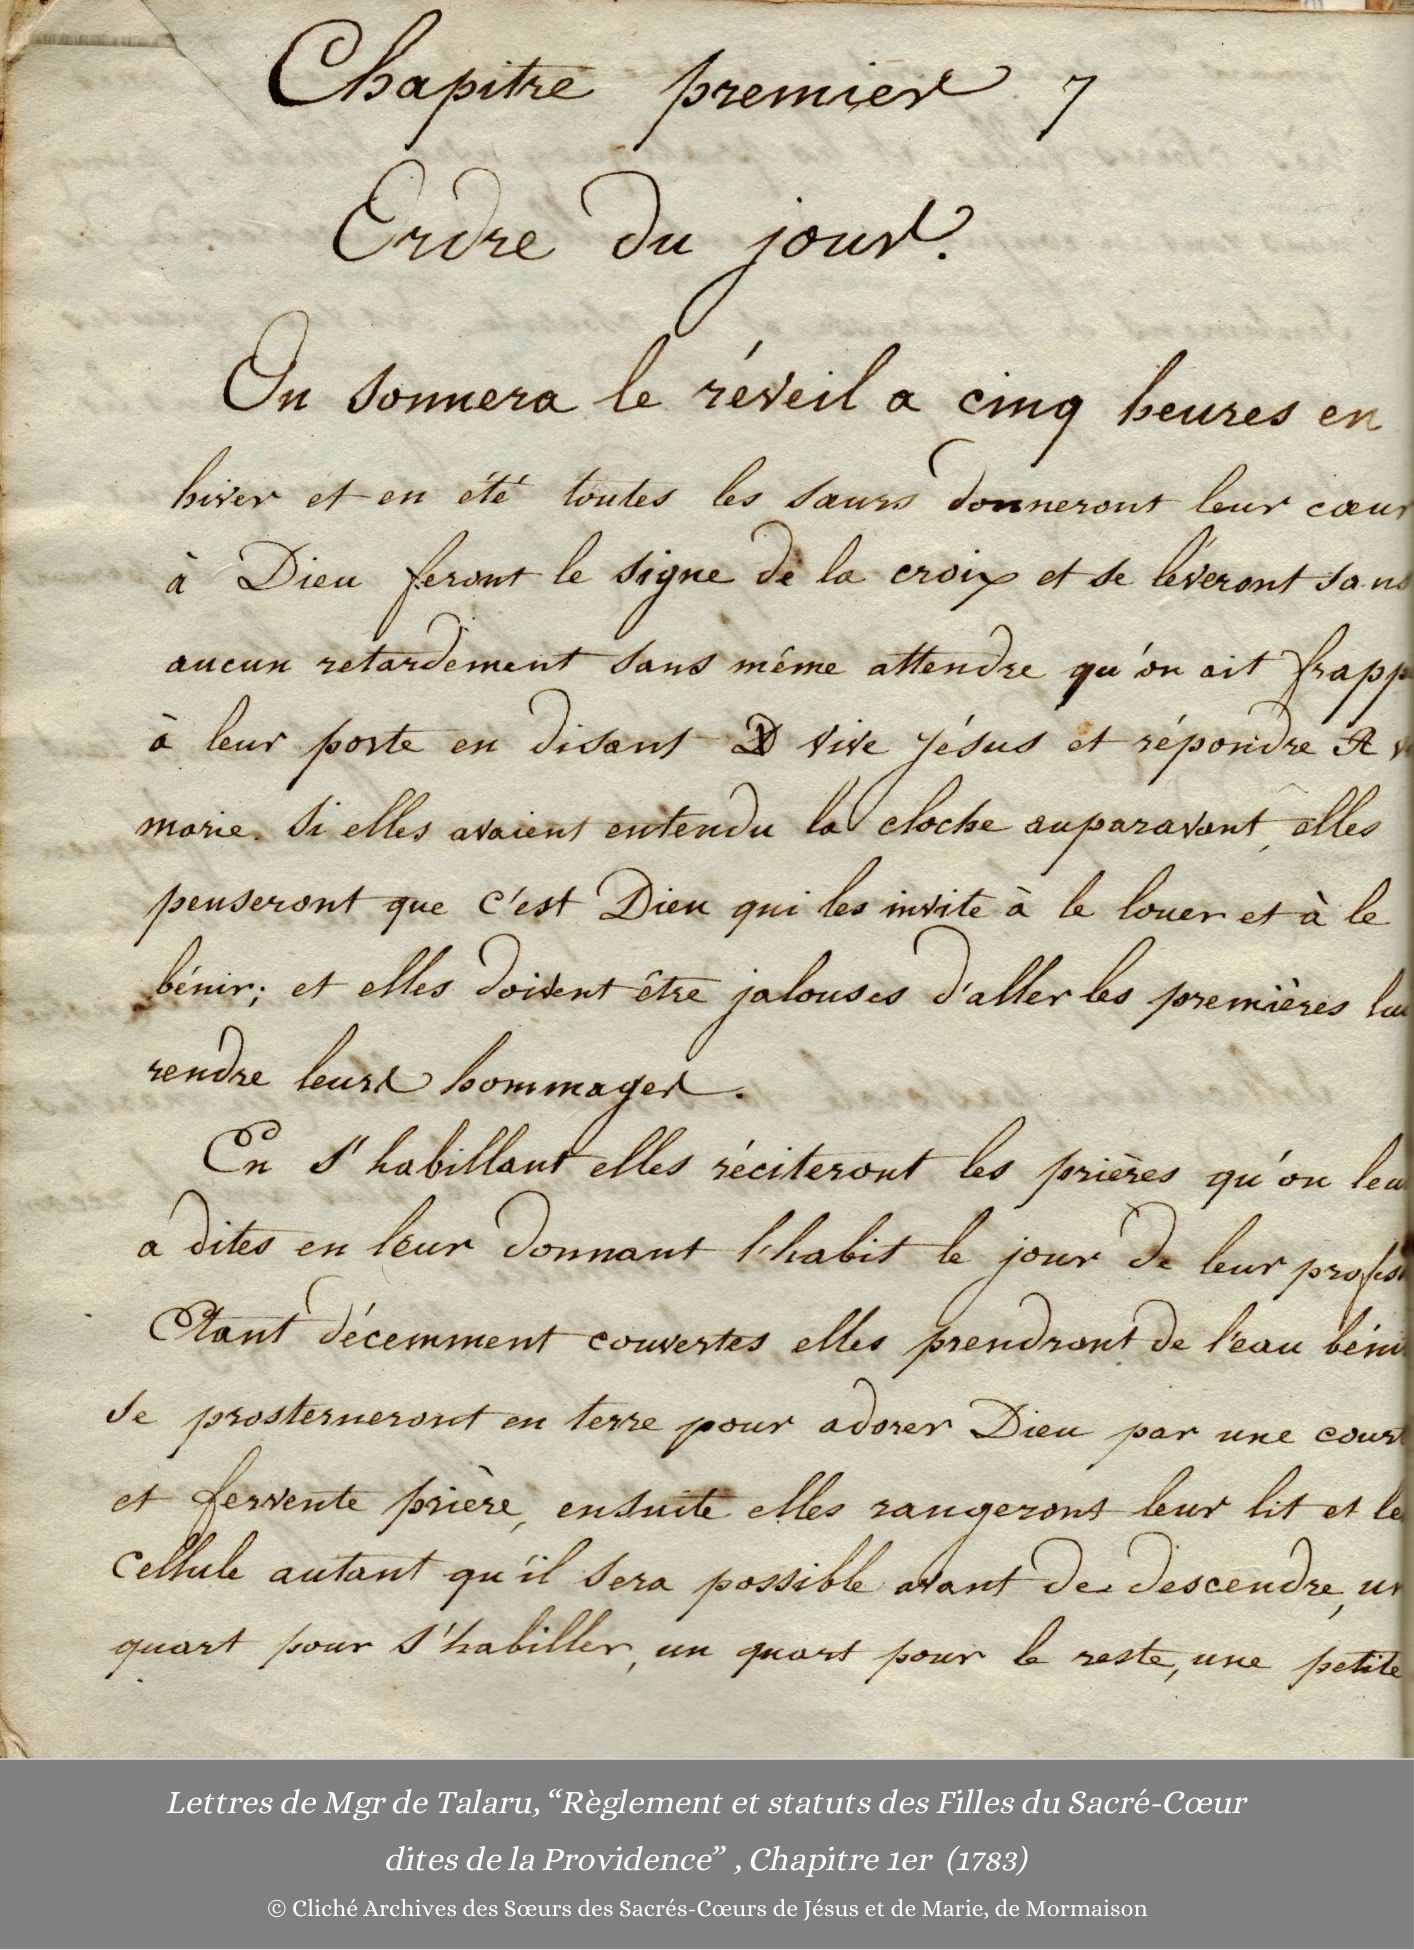 Chapitre premier 7
Ordre du jour.
On sonnera le réveil a cinq heures en
hiver et en été toutes les sœurs donneront leur cœur
à Dieu feront le signe de la croix et se léveront sans
aucun retardement sans même attendre qu'on ait frapp
à leur porte en disant vive Jésus et répondre A v
marie. Si elles avaient entendu la cloche auparavant, elles
penseront que c'est Dieu qui les invite à le louer et à le
bénir; et elles doivent être jalouses d'aller les premières lui
rendre leurs hommages.
En s'habillant elles réciteront les prières qu'on leu
a dites en leur donnant l'habit le jour de leur profess
Etant décemment couvertes elles prendront de l'eau béni
se prosterneront en terre pour adorer Dieu par une court
et fervente prière, ensuite elles rangeront leur lit et le
cellule autant qu'il sera possible avant de descendre, un
quart pour s'habiller, un quart pour le reste, une petite
Lettres de Mgr de Talaru, “Règlement et statuts des Filles du Sacré-Cœur
dites de la Providence” , Chapitre 1er (1783)
© Cliché Archives des Sœurs des Sacrés-Cœurs de Jésus et de Marie, de Mormaison